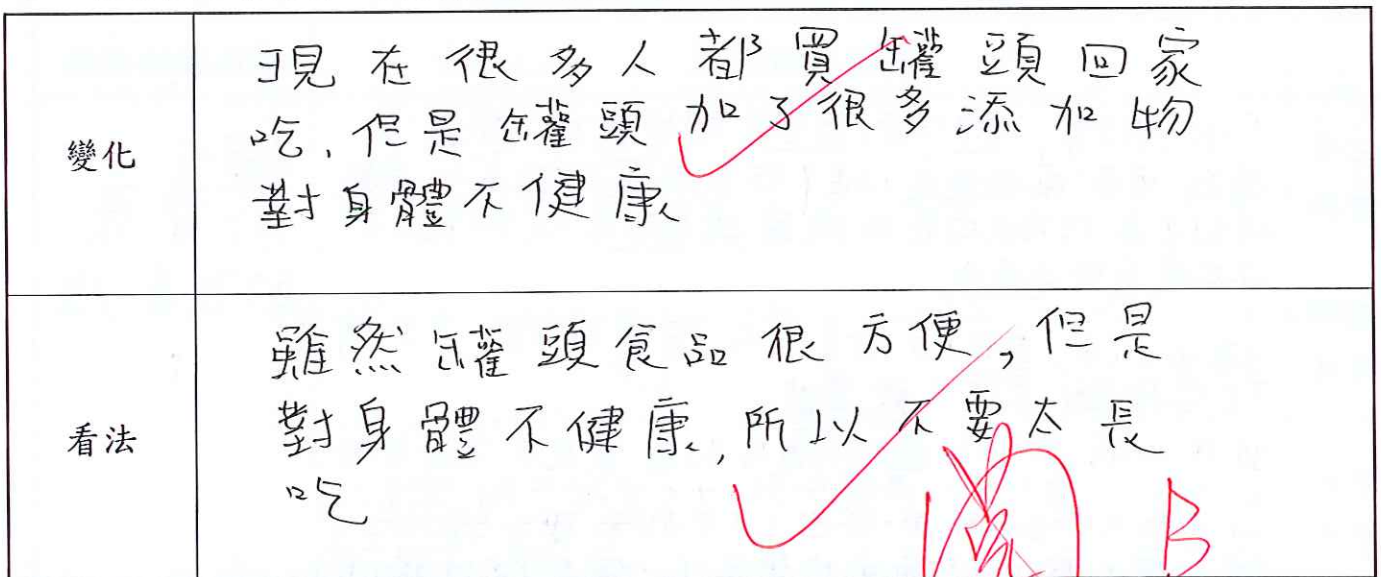 變化
現在很多人都買罐頭回家
吃,但是罐頭加了很多添加物
對身體不健康
看法
雖然罐頭食品很方便,但是
對身體不健康,所以不要太長
吃
B